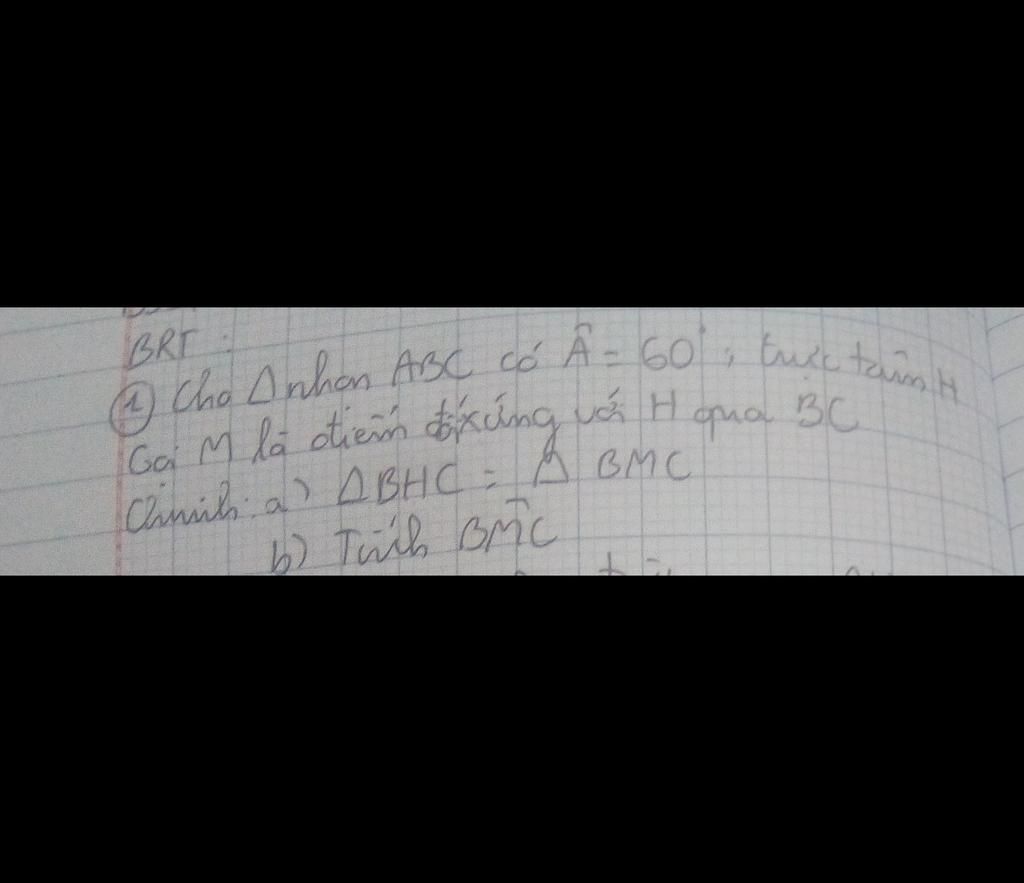 BRT:
① Cho Δ nhọn ABC có Â = 60°, trực tâm H
Gọi M là điểm đối xứng với H qua BC
Cminh: a) ΔBHC = Δ BMC
b) Tính BM̂C